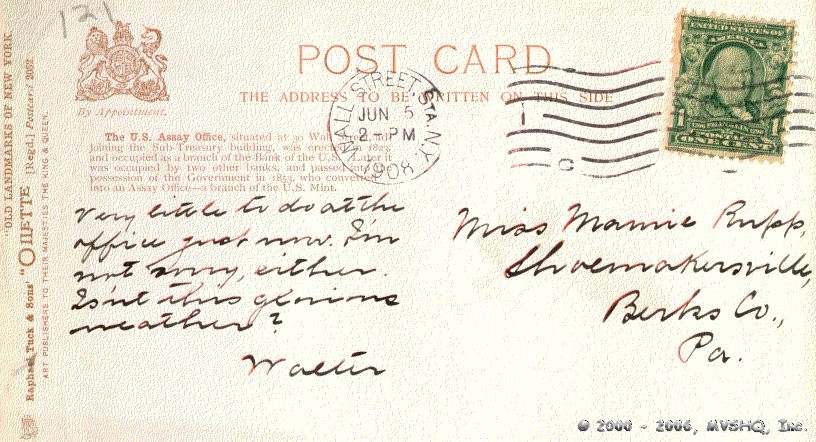 121
POST CARD
THE ADDRESS TO BE WRITTEN ON THIS SIDE
By Appointment.
The U.S. Assay Office, situated at 30 Wall Street, adjoining
joining the Sub-Treasury building, was erected in 1823,
and occupied as a branch of the Bank of the U.S. Later it
was occupied by two other banks, and passed into
possession of the Government in 1853, who converted
into an Assay Office—a branch of the U.S. Mint.
WALL STREET, STA. N.Y.
JUN 5
2-PM
1908
UNITED STATES OF
AMERICA
1 1
ONE CENT
Very little to do at the
office just now. I'm
not sorry, either.
Isn't this glorious
weather?
Walter
Miss Mamie Rupp,
Shoemakersville,
Berks Co.,
Pa.
"OLD LANDMARKS OF NEW YORK.
Raphael Tuck & Sons' "OILETTE [Regd.] Postcard 2062.
ART PUBLISHERS TO THEIR MAJESTIES THE KING & QUEEN.
© 2000 - 2006, MVSHQ, Inc.